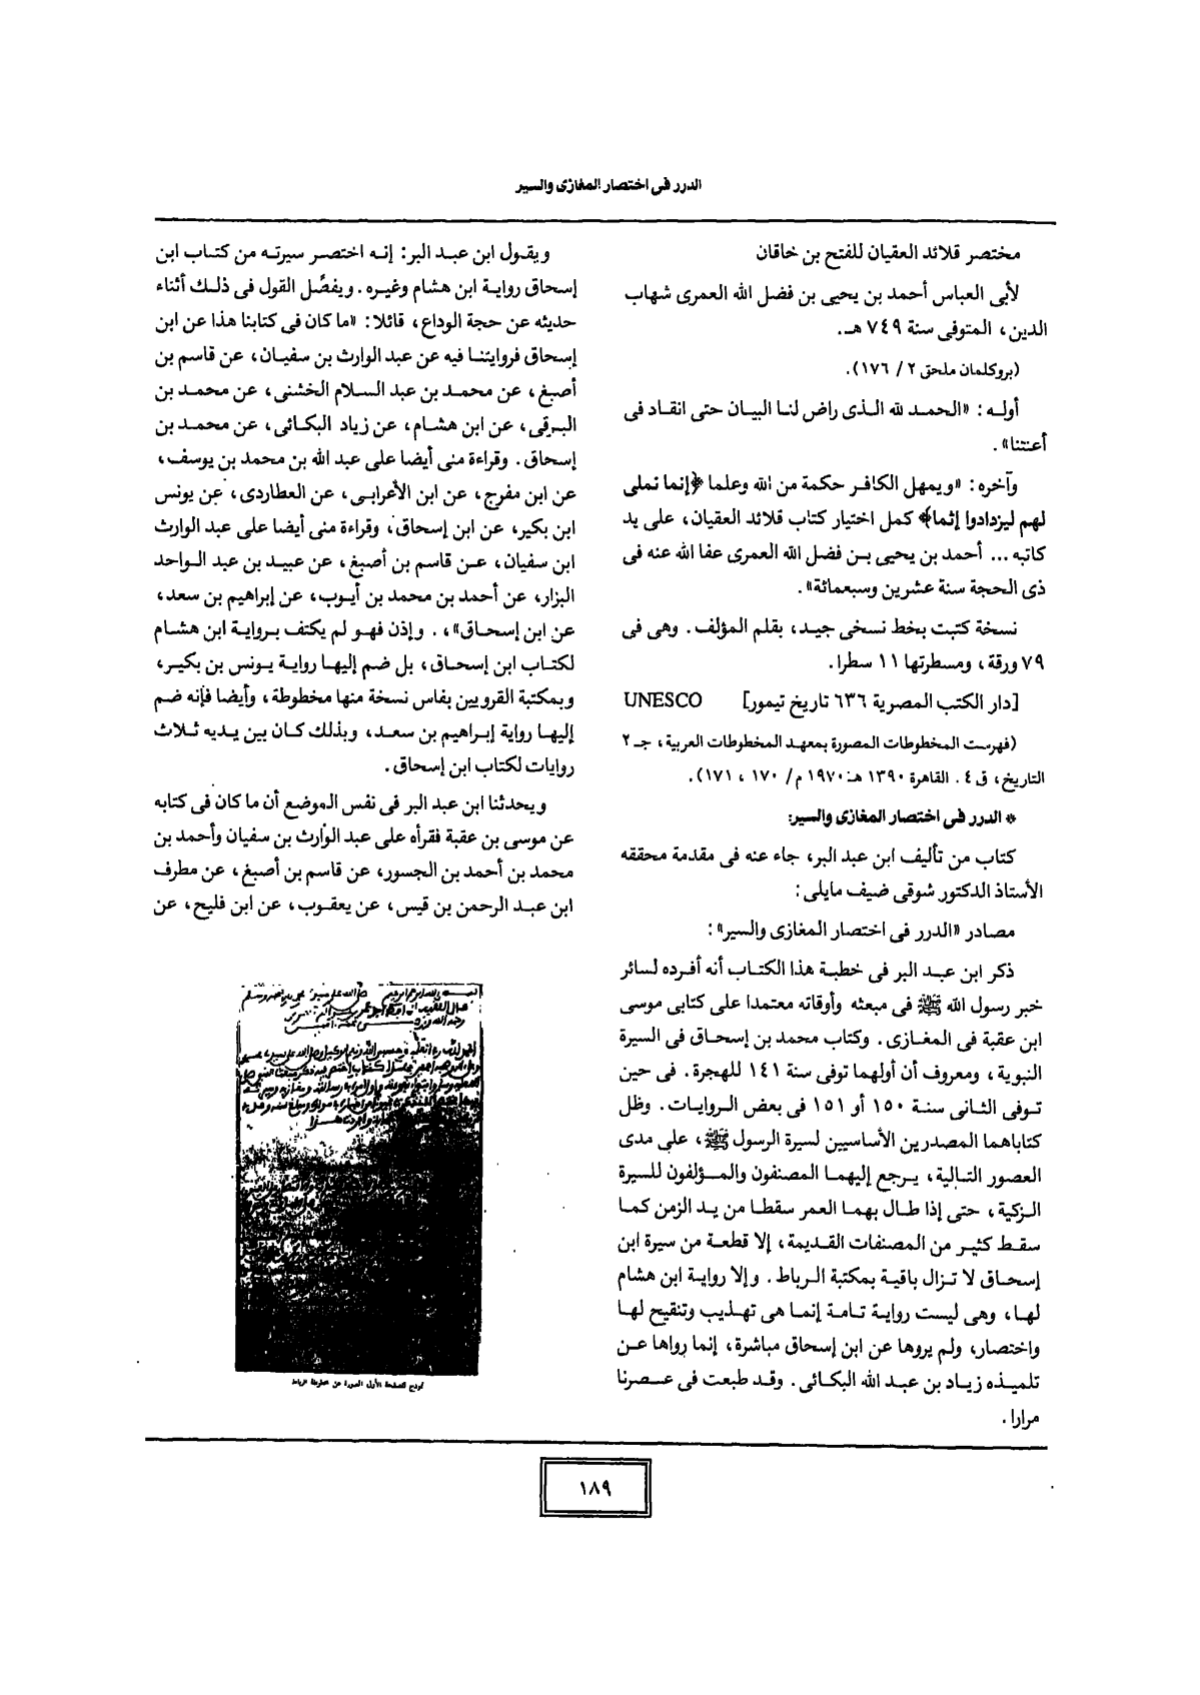 الدرر فى اختصار المغازى والسير
مختصر قلائد العقيان للفتح بن خاقان
لأبى العباس أحمد بن يحيى بن فضل الله العمرى شهاب
الدين، المتوفى سنة ٧٤٩ هـ.
(بروكلمان ملحق ٢ / ١٧٦).
أولـه : «الحمـد لله الـذى راض لنـا البيـان حتى انقـاد فى
أعنتنا» .
وآخره: «ويمهل الكافـر حكمة من الله وعلما ﴿إنما نملى
لهم ليزدادوا إثما﴾ كمل اختيار كتاب قلائد العقيان، على يد
كاتبه ... أحمد بن يحيى بـن فضل الله العمرى عفا الله عنه فى
ذى الحجة سنة عشرين وسبعمائة» .
نسخة كتبت بخط نسخى جيـد، بقلم المؤلف. وهى فى
٧٩ ورقة، ومسطرتها ١١ سطرا.
[دار الكتب المصرية ٦٣٦ تاريخ تيمور] UNESCO
(فهرست المخطوطات المصورة بمعهد المخطوطات العربية، جـ ٢
التاريخ، ق ٤ . القاهرة ١٣٩٠ هـ ١٩٧٠ م/ ١٧٠ ، ١٧١).
* الدرر فى اختصار المغازى والسير:
كتاب من تأليف ابن عبد البر، جاء عنه فى مقدمة محققه
الأستاذ الدكتور شوقى ضيف مايلى:
مصادر «الدرر فى اختصار المغازى والسير» :
ذكر ابن عبـد البر فى خطبـة هذا الكتـاب أنه أفـرده لسائر
خبر رسول الله ﷺ فى مبعثه وأوقاته معتمدا على كتابى موسى
ابن عقبة فى المغـازى. وكتاب محمد بن إسحـاق فى السيرة
النبوية، ومعروف أن أولهما توفى سنة ١٤١ للهجرة. فى حين
تـوفى الثـانى سنـة ١٥٠ أو ١٥١ فى بعض الـروايـات. وظل
كتاباهما المصدرين الأساسيين لسيرة الرسول ﷺ، على مدى
العصور التـالية، يـرجع إليهمـا المصنفون والمـؤلفون للسيرة
الـزكية، حتى إذا طـال بهمـا العمر سقطـا من يـد الزمن كمـا
سقـط كثيـر من المصنفات القـديمة، إلا قطعـة من سيرة ابن
إسحـاق لا تـزال باقيـة بمكتبة الـرباط. وإلا روايـة ابن هشام
لهـا، وهى ليست روايـة تـامـة إنمـا هى تهـذيب وتنقيح لهـا
واختصار، ولم يروها عن ابن إسحاق مباشرة، إنما رواها عـن
تلميـذه زيـاد بن عبـد الله البكـائى. وقـد طبعت فى عـصرنا
مرارا.
ويقـول ابن عبـد البر: إنـه اختصـر سيرتـه من كتـاب ابن
إسحاق روايـة ابن هشام وغيـره. ويفصِّل القول فى ذلـك أثناء
حديثه عن حجة الوداع، قائلا: «ما كان فى كتابنا هذا عن ابن
إسحاق فروايتنـا فيه عن عبد الوارث بن سفيـان، عن قاسم بن
أصبغ، عن محمـد بن عبد السلام الخشنى، عن محمـد بن
البـرقى، عن ابن هشـام، عن زياد البكـائى، عن محمـد بن
إسحاق. وقراءة منى أيضا على عبد الله بن محمد بن يوسف،
عن ابن مفرج، عن ابن الأعرابـى، عن العطاردى، عن يونس
ابن بكير، عن ابن إسحاق، وقراءة منى أيضا على عبد الوارث
ابن سفيان، عـن قاسم بن أصبغ، عن عبيـد بن عبد الـواحد
البزار، عن أحمد بن محمد بن أيـوب، عن إبراهيم بن سعد،
عن ابن إسحـاق»، . وإذن فهـو لم يكتف بـرواية ابن هشام
لكتـاب ابن إسحـاق، بل ضم إليهـا روايـة يـونس بن بكيـر،
وبمكتبة القرويين بفاس نسخة منها مخطوطة، وأيضا فإنه ضم
إليهـا رواية إبـراهيم بن سعـد، وبذلك كـان بين يـديه ثـلاث
روايات لكتاب ابن إسحاق.
ويحدثنا ابن عبد البر فى نفس الموضع أن ما كان فى كتابه
عن موسى بن عقبة فقرأه على عبد الوارث بن سفيان وأحمد بن
محمد بن أحمد بن الجسور، عن قاسم بن أصبغ، عن مطرف
ابن عبـد الرحمن بن قيس، عن يعقـوب، عن ابن فليح، عن
نموذج للصفحة الأولى المصورة عن مخطوطة الرباط
١٨٩